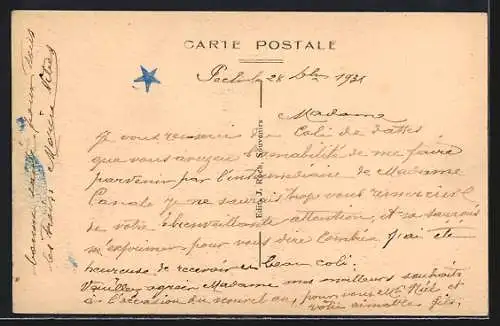 CARTE POSTALE
28 1931
Madame
Je vous remercie du Coli de dattes
que vous avez eu l'amabilité de me faire
parvenir par l'intermédiaire de Madame
je ne saurais trop vous remercier
de votre bienveillante attention, et ne saurais
m'exprimer pour vous dire Combien j'ai été
heureuse de recevoir ce beau coli.
Veuillez agréer Madame mes meilleurs souhaits
à l'occasion du nouvel an, pour vous Mr et
votre aimable fils.
bonne pour tous
les
Edit. J. Roch Souvenirs